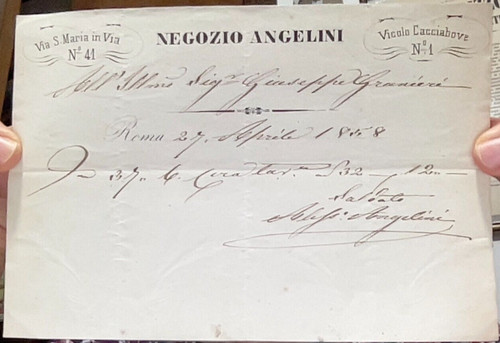 Via S. Maria in Via
Nº 41
NEGOZIO ANGELINI
Vicolo Cacciabove
Nº 1
All' Illmo Sigr Giuseppe Granieri
Roma 27. Aprile 1858
32 12
Saldato
Angelini